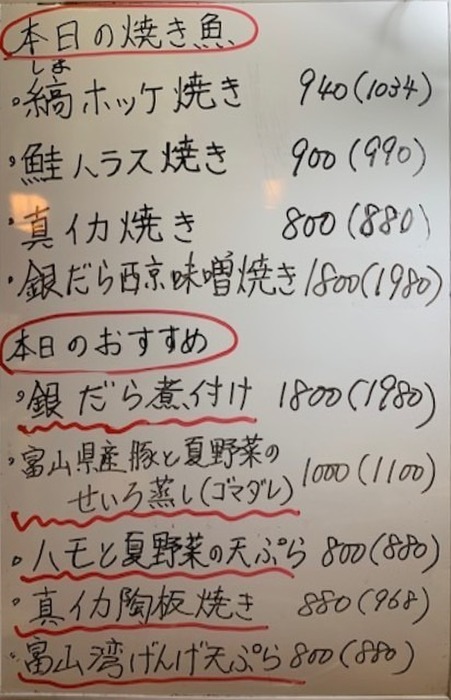 本日の焼き魚
しま
・縞ホッケ焼き 940(1034)
・鮭ハラス焼き 900(990)
・真イカ焼き 800(880)
・銀だら西京味噌焼き 1800(1980)
本日のおすすめ
・銀だら煮付け 1800(1980)
・富山県産豚と夏野菜の
せいろ蒸し(ゴマダレ) 1000(1100)
・ハモと夏野菜の天ぷら 800(880)
・真イカ陶板焼き 880(968)
・富山湾げんげ天ぷら 800(880)